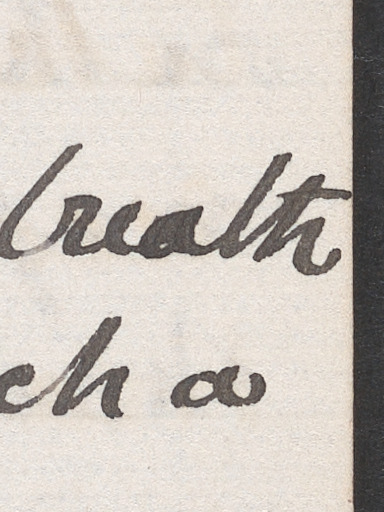 breath
ch a